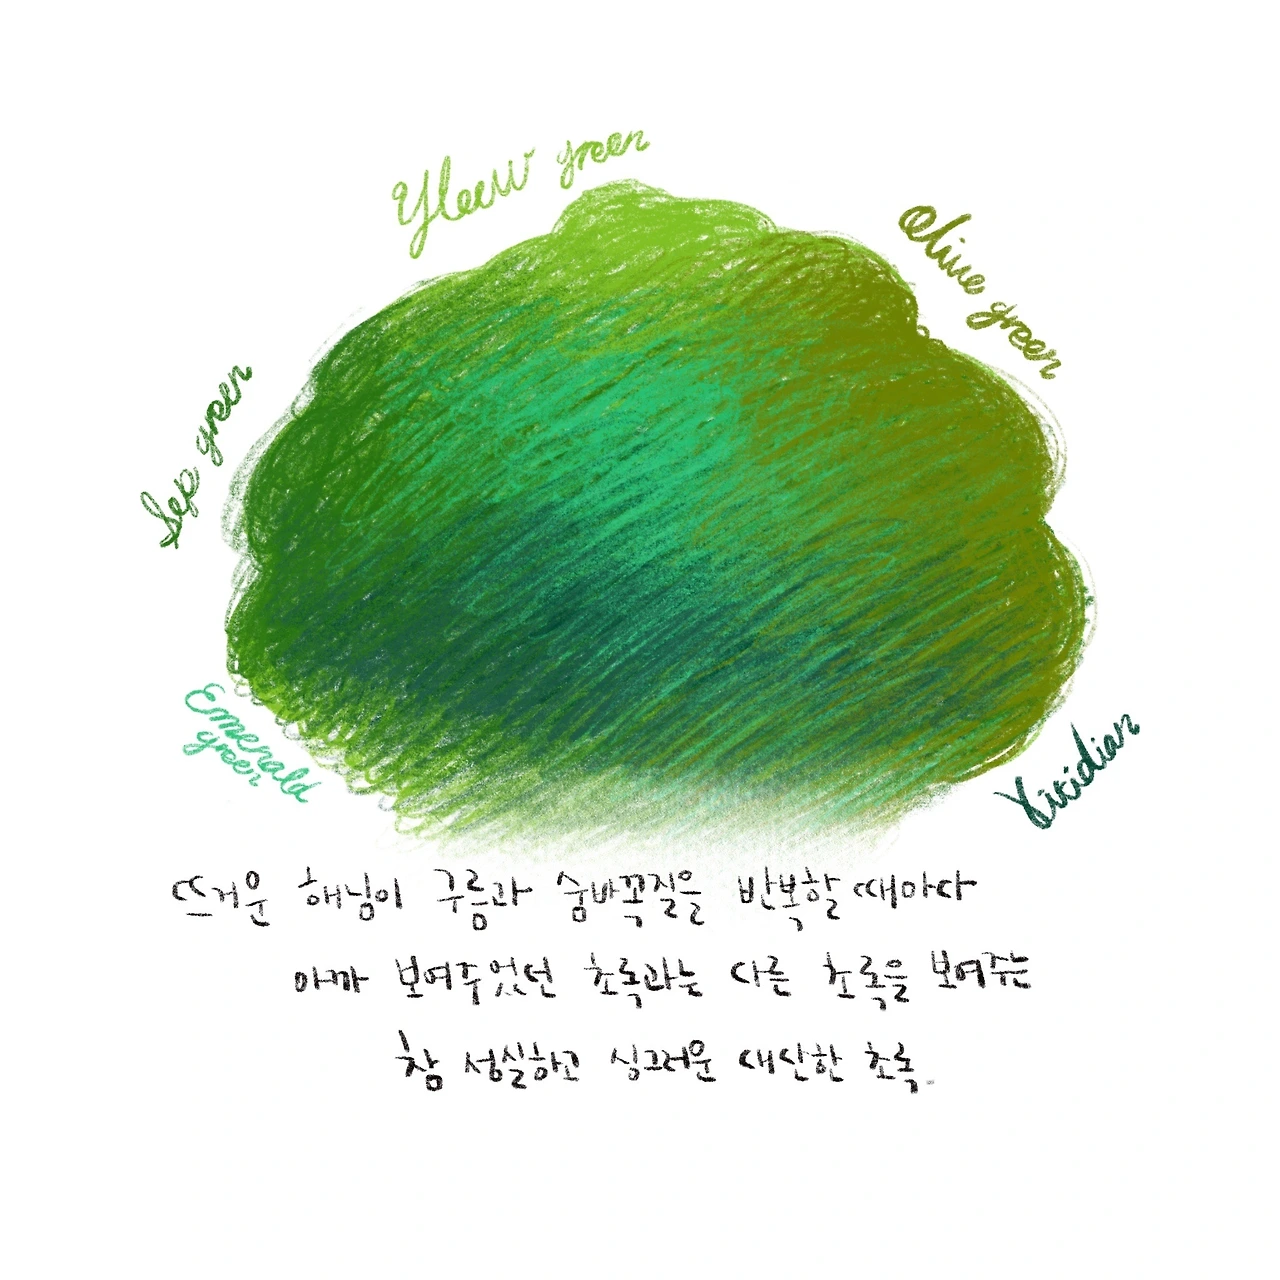 Yleew green
Olive green
Sep green
Emerald
green
Viridian
뜨거운 해님이 구름과 숨바꼭질을 반복할 때마다
아까 보여주었던 초록과는 다른 초록을 보여주는
참 성실하고 싱그러운 대단한 초록.